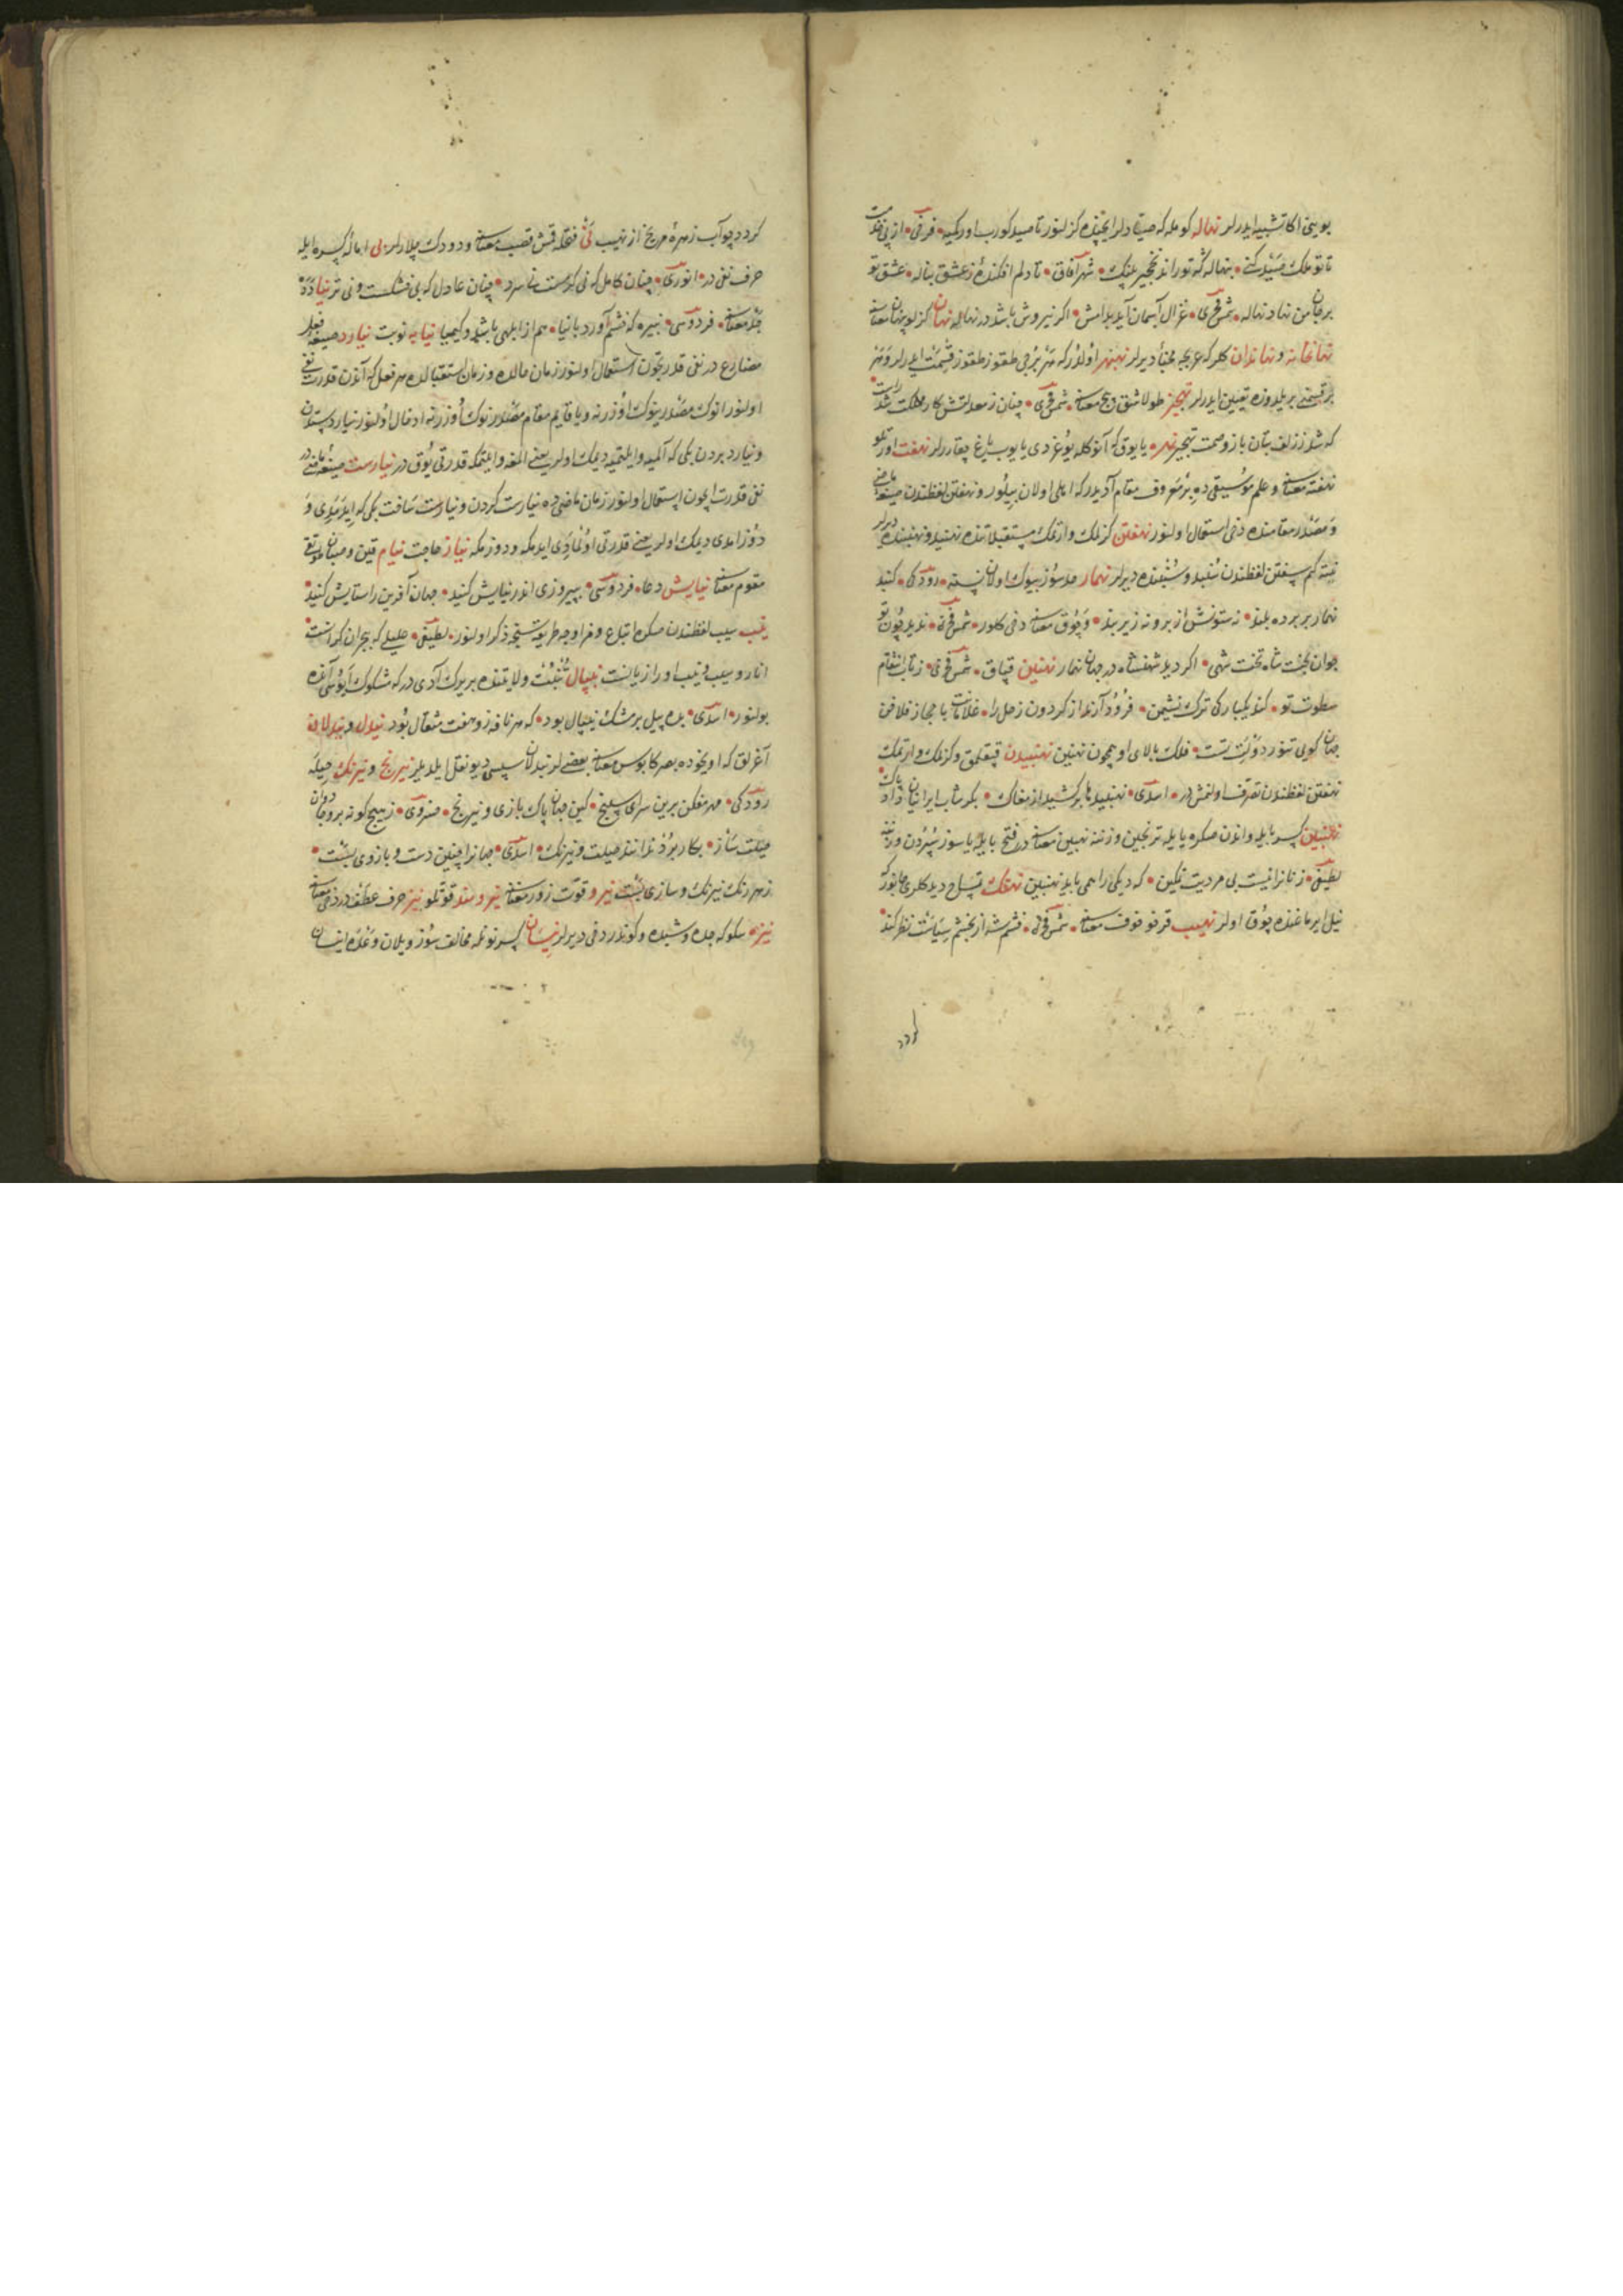 بویینی اکا تشبیه ایدرلر نهاله کومله که صیاد لر ایچنده کزلنور تا صید کورب اورکمیه فرخی از پی خدمت
تا تو ملک صید کنی بنهاله که تو راند نخجیر پلنک شهر آفاق تا دلم افکنده ز عشق بناله عشق تو
بر جان من نهاد نهاله شمس فخری غزال آسمان آید بدامش اکر نیروش باشد در نهاله نهان کزلو پنهان معناسنه
نهانخانه و نهاندان کلر که عربجه مخبأ دیرلر نهبهر اولدر که هر برجی طقوز طقوز قسمت ایدرلر و هر
بر قسمنی بر یلدوزه تعیین ایدرلر
که شد ز زلف بتان باز و صمت یا یوق که آنوکله یوغردی یا یوب یاغ چقارر لر نهفت اورتلو
نهفته معناسنه و علم موسیقی ده بر معروف مقام آدیدر که اهلی اولان بیلور و نهفتن لفظندن صیغه ماضی
و مصدر مقامنده دخی استعمال اولنور نهفتن کزلمک و اورتمک مستقبلاتنده نهنبد و نهنبنده دیرلر
نیته کیم سفتن لفظندن سنبد و سنبنده دیرلر نهمار حدسوز بیوک اولان نسنه رودکی کنبد
نهمار بر برده بلند نه ستونش از برونه زیر بند و چوق معناسنه دخی کلور شمس فخری ندید چون تو
جوان بخت شاه تخت شهی اکر دید شهنشاه در جهان نهمار نهنبن قپاق شمس فخری ز تاب انتقام
سطوت تو کند یکبارکی ترک نشیمن فرود آرند از کردون زحل را غلامانت با حجاز فلاخن
جهان کویی تنور دولت تست فلک بالای او همچون نهنبن نهنبیدن قپقلمق و کزلمک و اورتمک
نهفتن لفظندن تصرف اولنمش در اسدی نهنبیدها بر کشید از مغاک بکرشاب ایرانیان داد پاک
نهنبین کسر بایله و اندن صکره یا یله ترنجبین وزننه نهنبن معناسنه در فتح بایله یا سوز
لطیفی زنانرا نیست بی مردیت تمکین که دیکی را همی باید نهنبین نهنک تمساح دیدکلری جانور که
نیل ایرماغنده چوق اولر نهیب قورقو خوف معناسنه شمس فخری خشم شه از بخشم سیاست نظر کند
کردد
کردد چو آب زهرهٔ مریخ از نهیب نی فتحله قمش قصب معناسنه و دودک چلارلر نی امالهٔ کسره ایله
حرف نفی در انوری چنان کامل که نی کرمست نی سرد چنان عادل که نی خشکست و نی تر نیا دده
جد معناسنه فردوسی نبیره که خشم آورد با نیا هم از ابلهی باشد و کیمیا نیابه نوبت نیارد صیغه فعل
مضارع در نفی قدرتچون استعمال اولنور زمان حالده و زمان استقبالده هر فعل که آندن قدرت نفی
اولنور انوک مصدرینوک اوزرنه و یا قایم مقام مصدر انوک اوزرنه ادخال اولنور نیارد ستدن
و نیارد بردن بکی که آلمیه و ایلتمیه دیمک اولر یعنی المغه و ایلتمکه قدرتی یوق در نیارست صیغه ماضی در
نفی قدرت ایچون استعمال اولنور زمان ماضی ده نیارست کردن و نیارست ساخت بکی که ایدمدی و
دوزامدی دیمک اولر یعنی قدرتی اولمادی ایدمکه و دوزمکه نیاز حاجت نیام قین و صبان
معناسنه نیایش دعا فردوسی بپیروزی اندر نیایش کنید جهان آفرین را ستایش کنید
نیب سیب لفظندن صکره اتباع و مزاوجه طریقتنجه ذکر اولنور لطیفی علیلی که بحران کراست
انار و سیب و نیب او را زیانست نیپال تبت ولایتنده بر یرک آدی در که مشکوک ایوسی آنده
بولنور اسدی بده پیل بر مشک نیپال بود که هر نافه زو هفت مثقال بود نیدل و نیدلان
آغرلق که اویخوده بصر کابوس معناسنه بعضیلر نیدلان سپسی دیو نقل ایلدیلر نیرنج و نیرنک حیله
رودکی مهر مفکن برین سرای سپنج کین جهان پاک بازی و نیرنج خسروی ز هیچ کونه بروجادوان
حیلت ساز بکار برد ندانند حیلت و نیرنک اسدی جهانرا چنین دست و بازی بسست
زهر رنک نیرنک و سازی بسست نیرو قوت زور معناسنه نیرومند قوتلو نیز حرف عطف در دخی معناسنه
نیزه سکو که جده و شیده و کوندر دخی دیرلر نیسان کسر نونله مخالف سوز و یلان و غدده اینسان